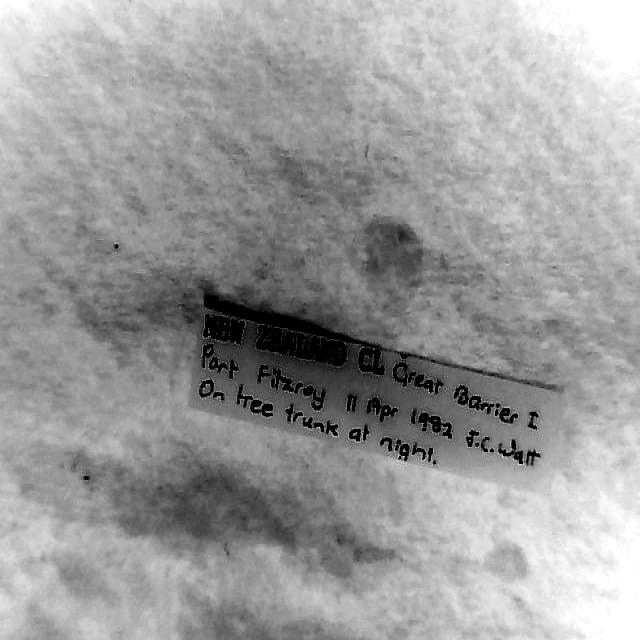 NEW ZEALAND CL Great Barrier I
Port Fitzroy 11 Apr 1982 J.C. Watt
On tree trunk at night.